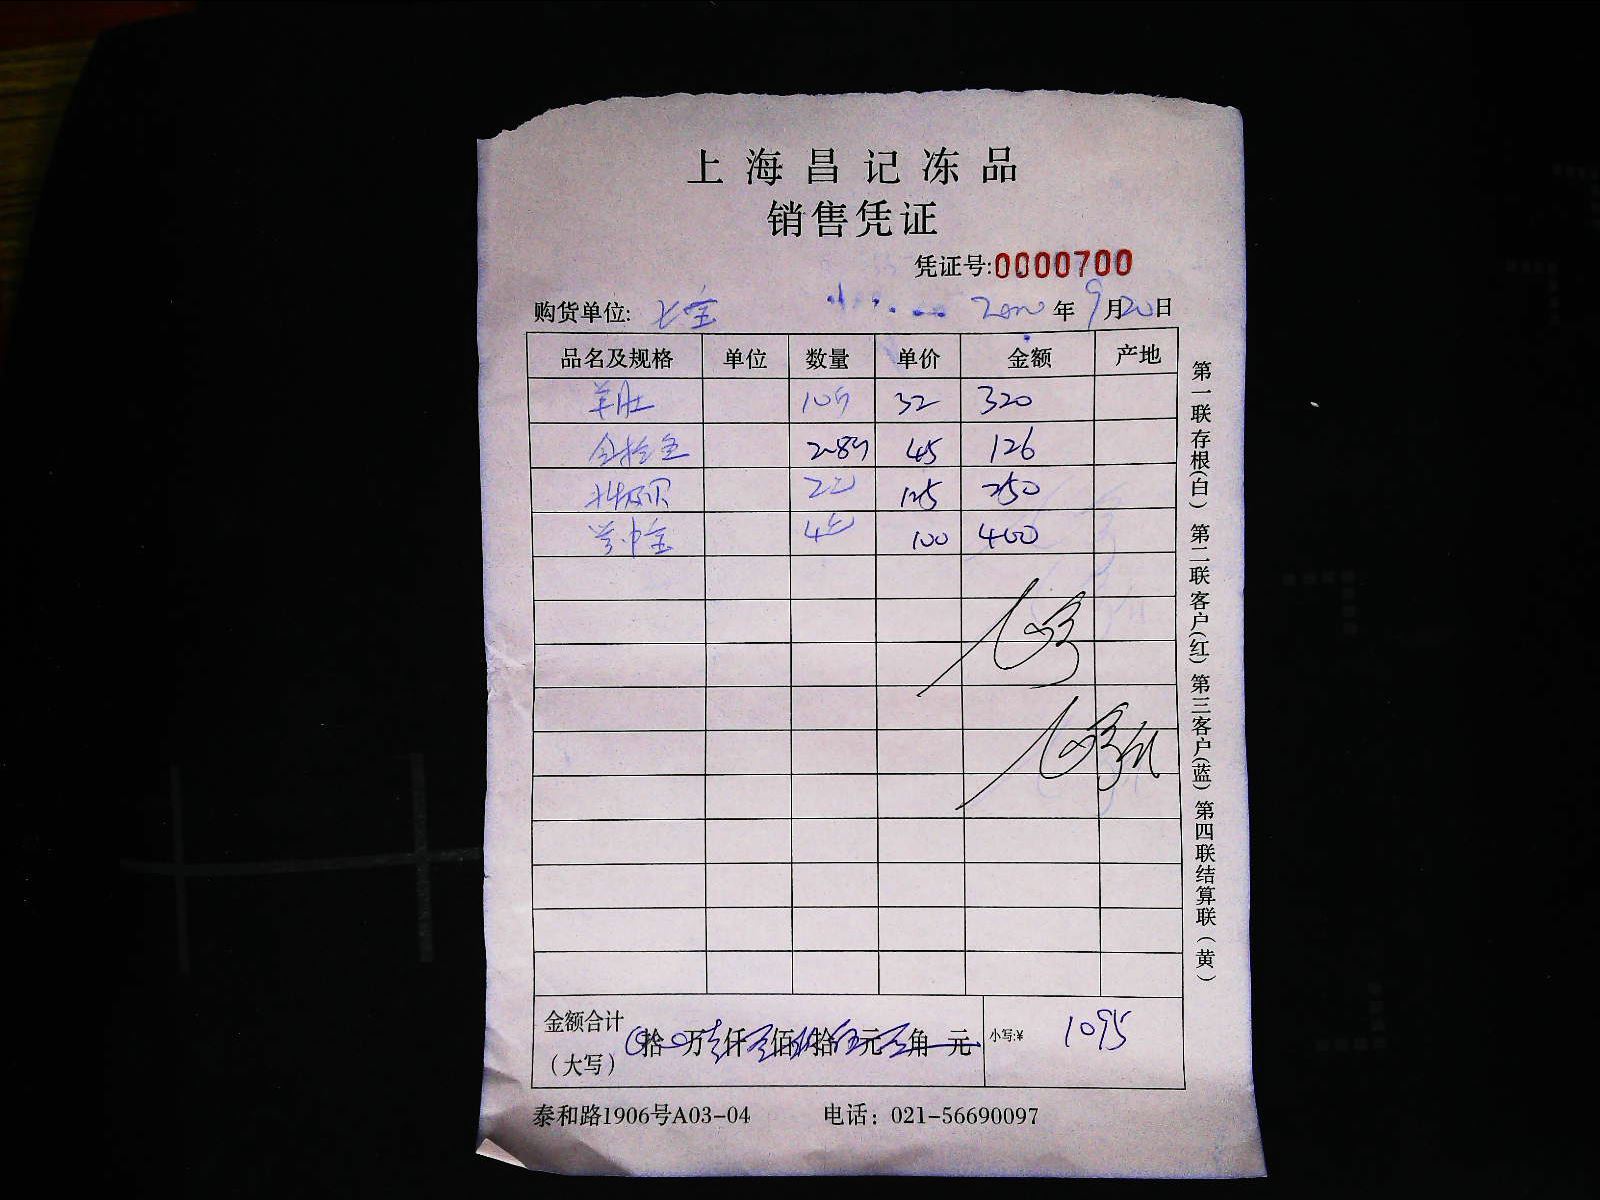 上海昌记冻品
销售凭证
凭证号:0000700
购货单位: 七宝 年9月20日
品名及规格 单位 数量 单价 金额 产地
羊肚 10斤 32 320
2.8斤 45 126
北极贝 2包 125 250
4包 100 400
金额合计（大写） 拾 万 仟 佰 拾 元 角 元 小写:¥ 1095
泰和路1906号A03-04 电话：021-56690097
第一联存根(白) 第二联客户(红) 第三客户(蓝) 第四联结算联(黄)